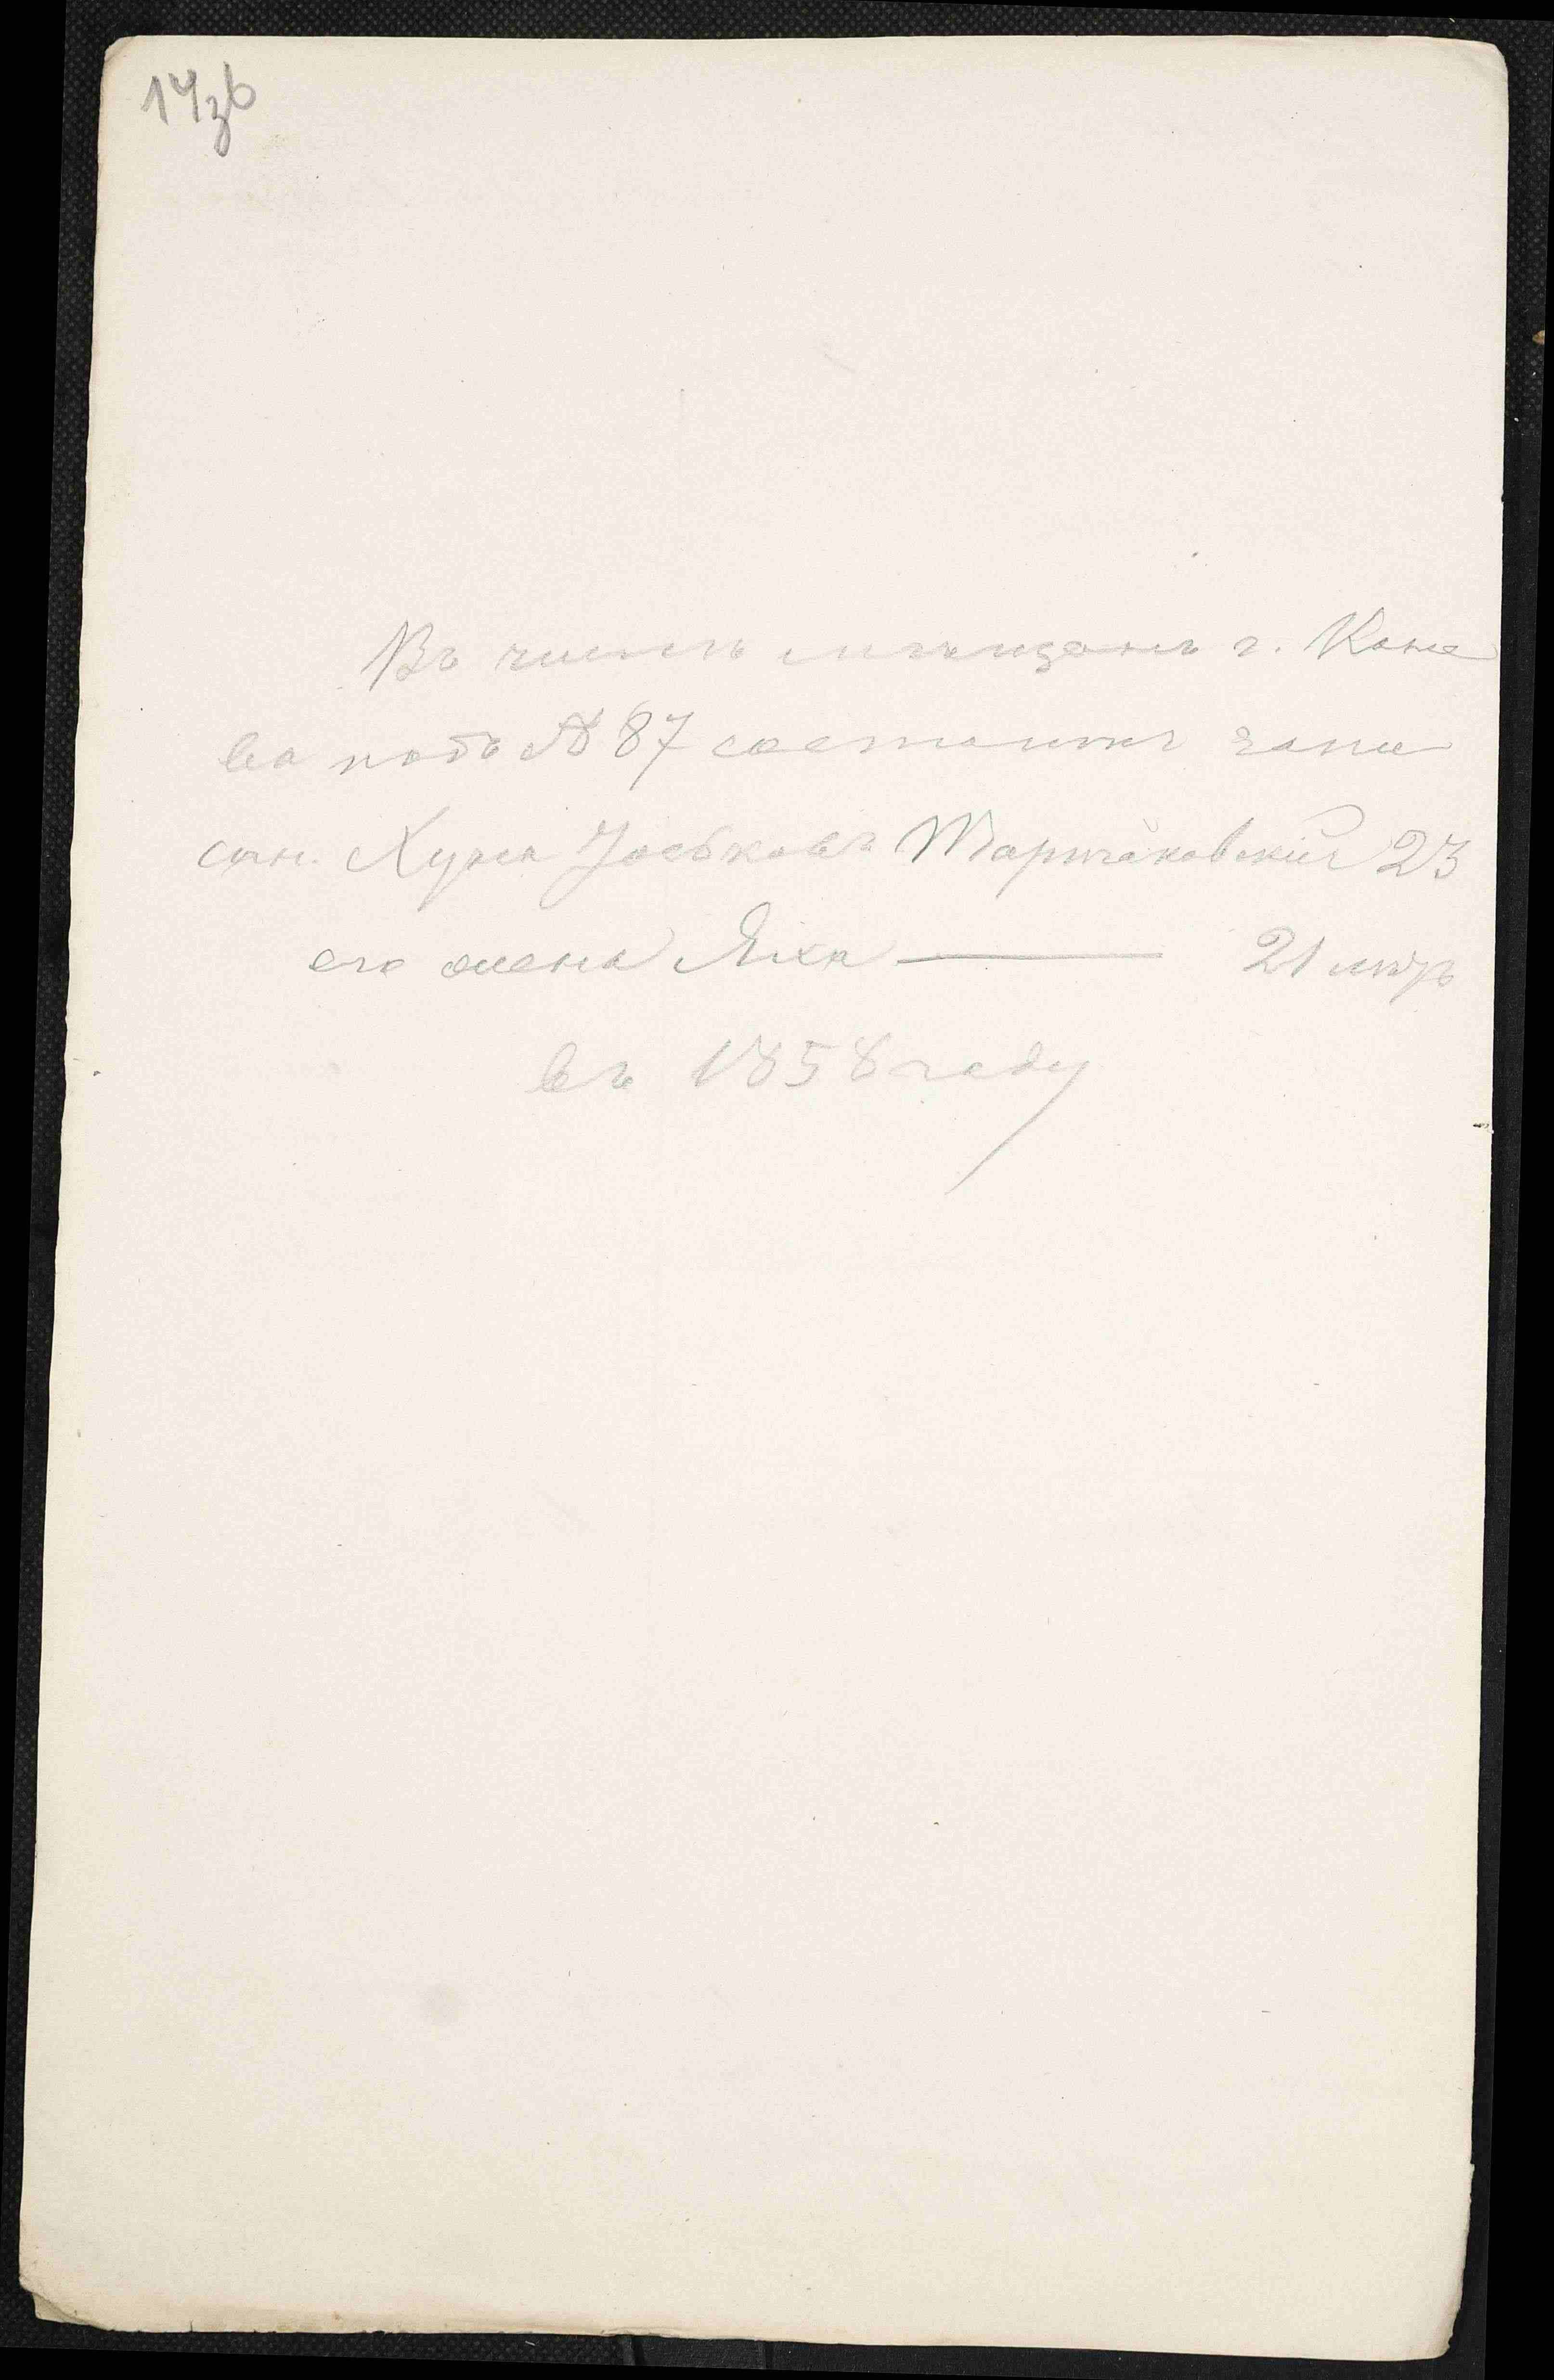 14зв
Въ числѣ мѣщанъ г. Кане
ва подъ № 87 состоитъ запи
сан. Хуна Іоськовъ Тартаковскій 23
его жена Яхна 21 лѣтъ
въ 1858 году